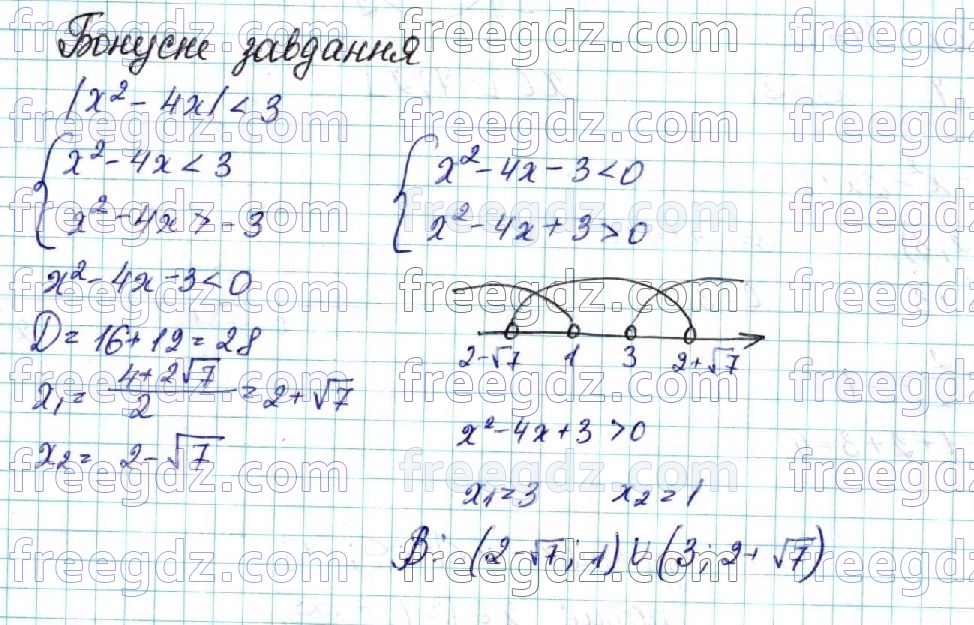 Бонусне завдання
|x² - 4x| < 3
{ x² - 4x < 3
{ x² - 4x > -3
x² - 4x - 3 < 0
D = 16 + 12 = 28
x₁ = (4 + 2√7)/2 = 2 + √7
x₂ = 2 - √7
{ x² - 4x - 3 < 0
{ x² - 4x + 3 > 0
2-√7 1 3 2+√7
x² - 4x + 3 > 0
x₁ = 3 x₂ = 1
В: (2 - √7; 1) ∪ (3; 2 + √7)
freegdz.com freegdz.com freegdz
freegdz.com freegdz.com freegdz
freegdz.com freegdz.com freegdz
freegdz.com freegdz.com freegdz
freegdz.com freegdz.com freegdz
freegdz.com freegdz.com freegdz
freegdz.com freegdz.com freegdz